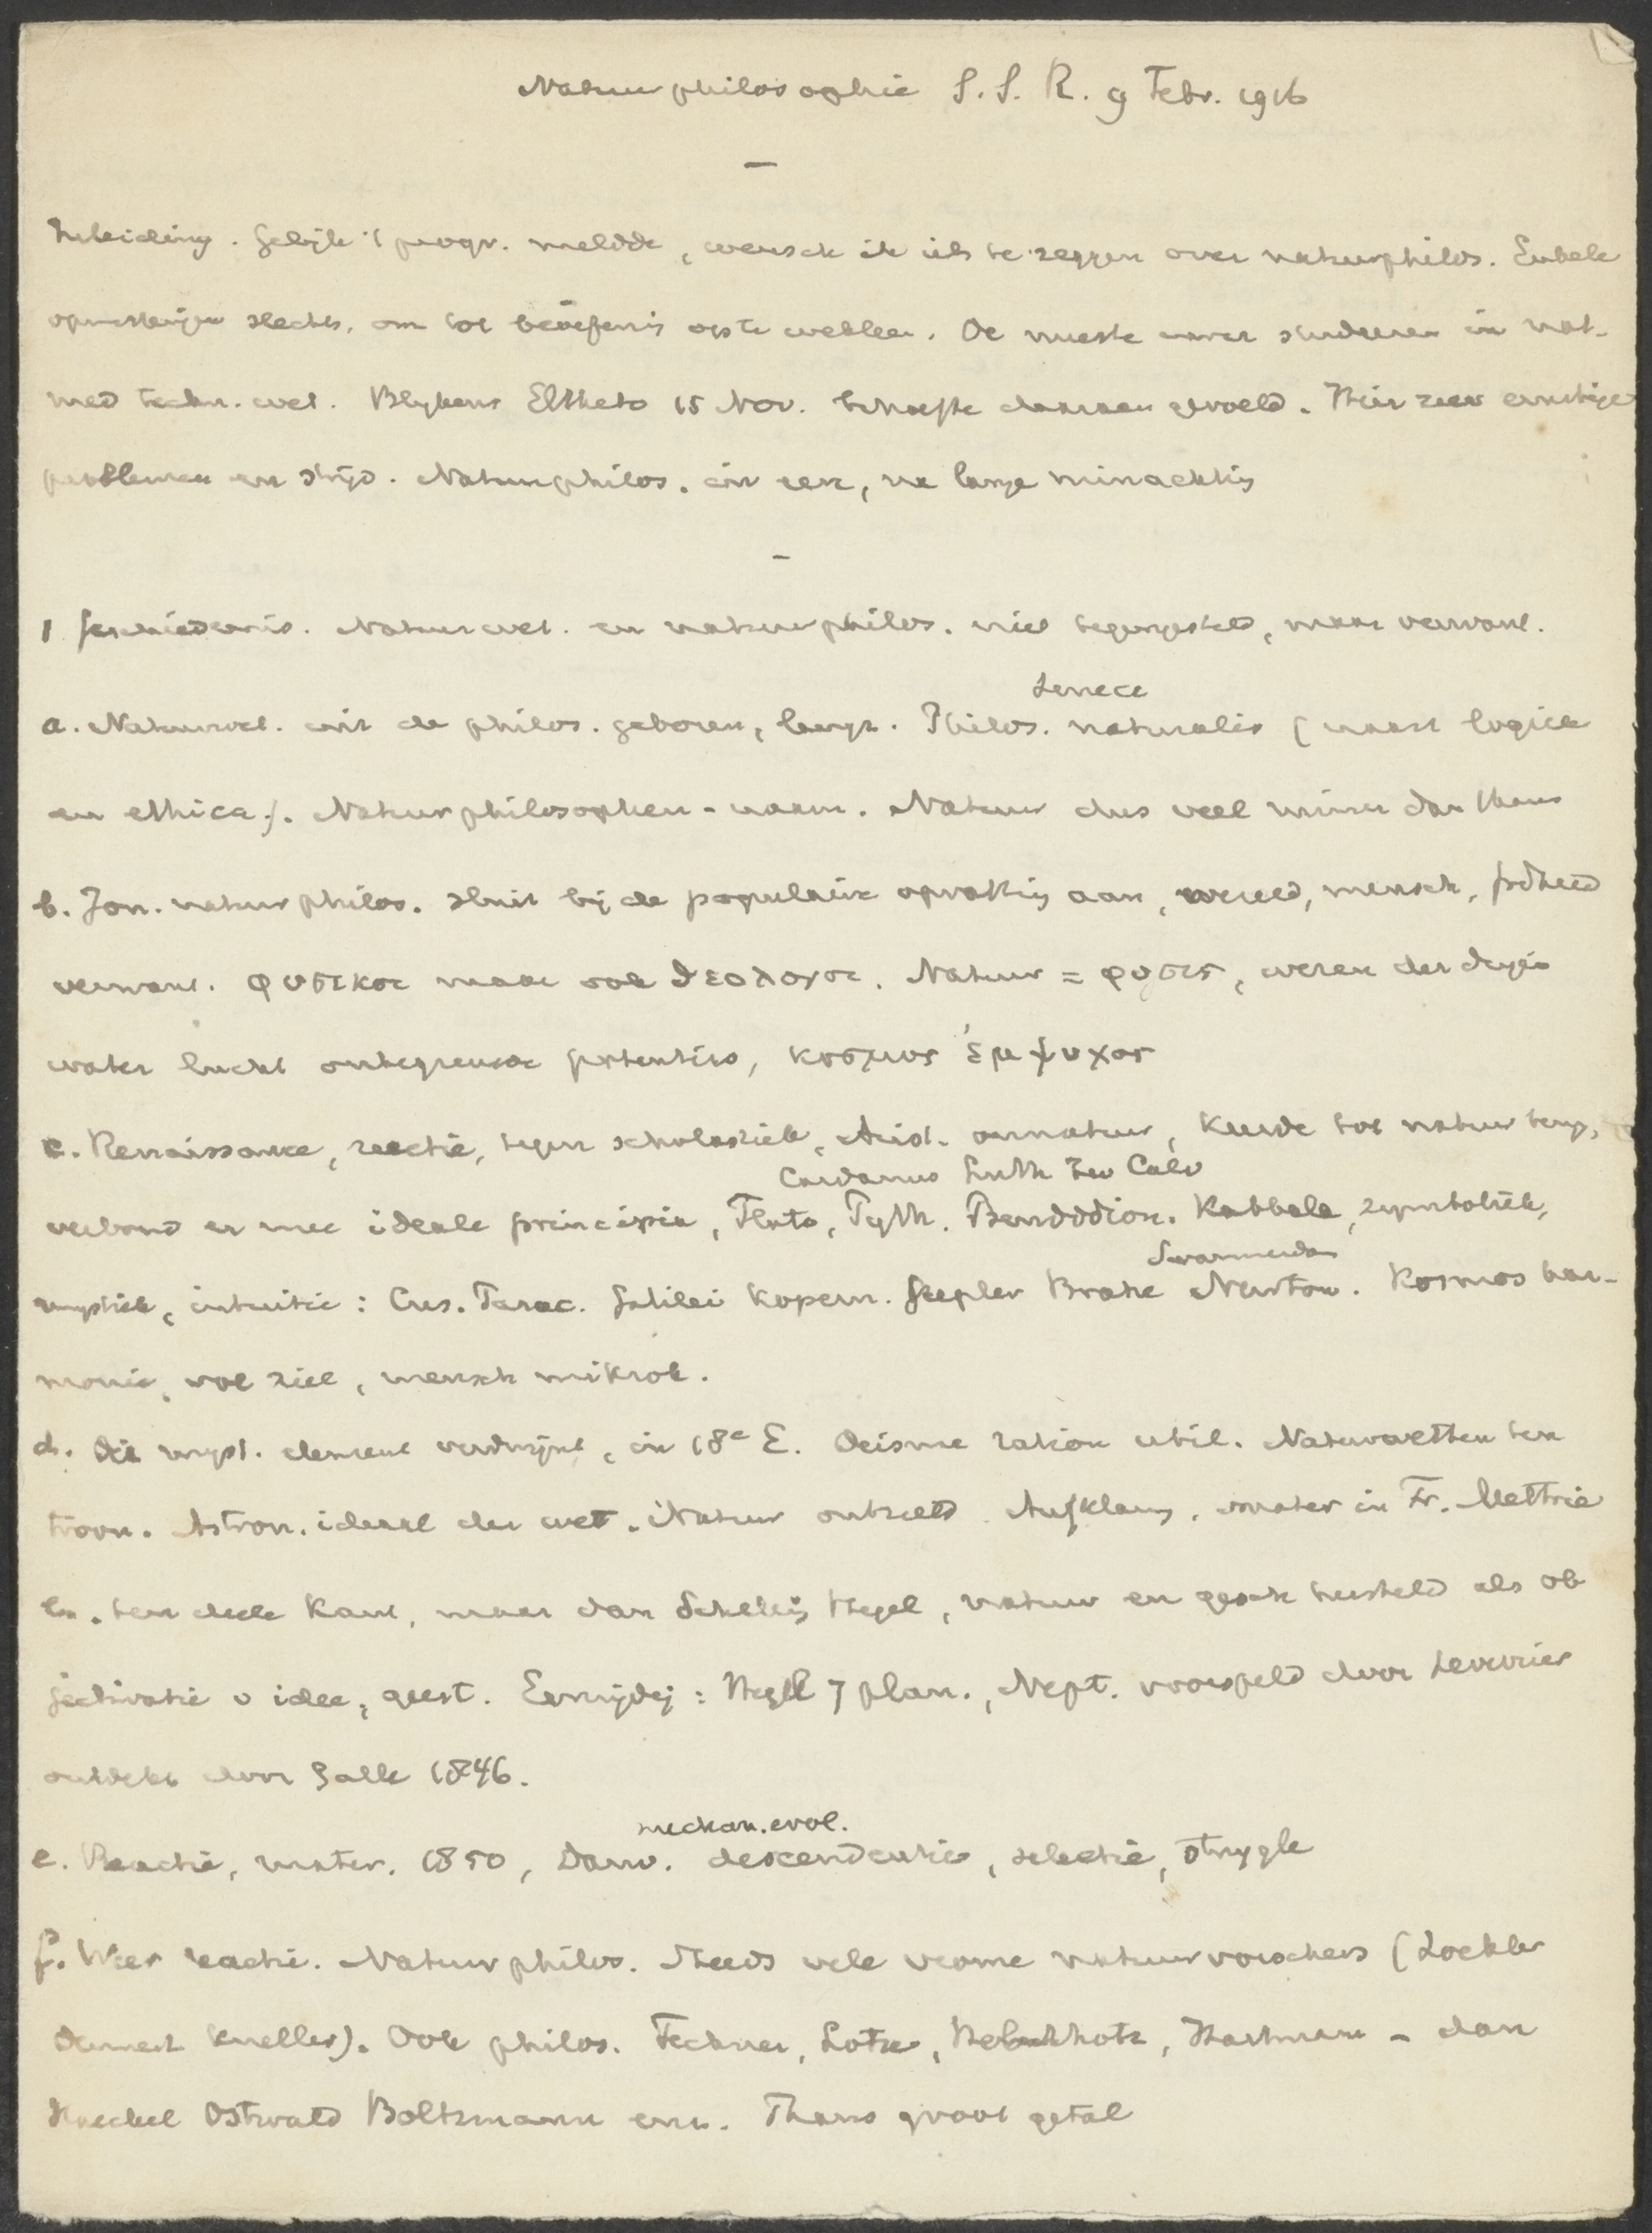 Natuurphilosophie S.S.R. 9 Febr. 1916
Inleiding. Gelijk 't progr. meldde, wensch ik iets te zeggen over natuurphilos. Enkele
opmerkingen slechts, om tot beoefenis op te wekken. De meeste unver studeeren in nat.
med techn. wet. Blijkens Eltheto 15 Nov. behoefte daaraan gevoeld. Hier zeer ernstige
problemen en strijd. Natuurphilos. in eere, na lange minachting
1 Geschiedenis. Natuurwet. en natuurphilos. niet tegengesteld, maar verwant.
Seneca
a. Natuurwet. uit de philos. geboren, langz. Philos. naturalis (naast logica
en ethica). Natuurphilosophen-naam. Natuur dus veel ruimer dan thans
b. Ion. natuurphilos. sluit bij de populaire opvatting aan, wereld, mensch, godheid
verwant. φυσικοι maar ook θεολογοι. Natuur = φυσις, wezen der dingen
water lucht onbegrensde potenties, κοσμος ἐμψυχος
c. Renaissance, reactie, tegen scholastiek, Arist. onnatuur, keerde tot natuur terug,
Cardanus Luth Zw Calv
verbond er mee ideale principia, Plato, Pyth. Pseudodion. Kabbala, symboliek,
Swammerdam
mystiek, intuitie: Cus. Parac. Galilei Kopern. Keepler Brahe Newton. Kosmos har-
monie, vol ziel, mensch mikrok.
d. Dit myst. element verdwijnt, in 18e E. Deisme ration util. Natuurwetten ten
troon. Astron. ideaal der wet. Natuur ontzield Aufklarung, mater in Fr. Mettrie
ten deele Kant, maar dan Schelling Hegel, natuur en gesch hersteld als ob
jectivatie v idee, geest. Eenzijdig: Hegel 7 plan., Nept. voorspeld door Leverrier
ontdekt door Galle 1846.
mechan. evol.
e. Reactie, mater. 1850, Darw. descendentie, selectie, struggle
f. Weer reactie. Natuurphilos. Steeds vele vrome natuurvorschers (Zöckler
Dennert Kneller). Ook philos. Fechner, Lotze, Helmholtz, Hartmann - dan
Haeckel Ostwald Boltzmann enz. Thans groot getal